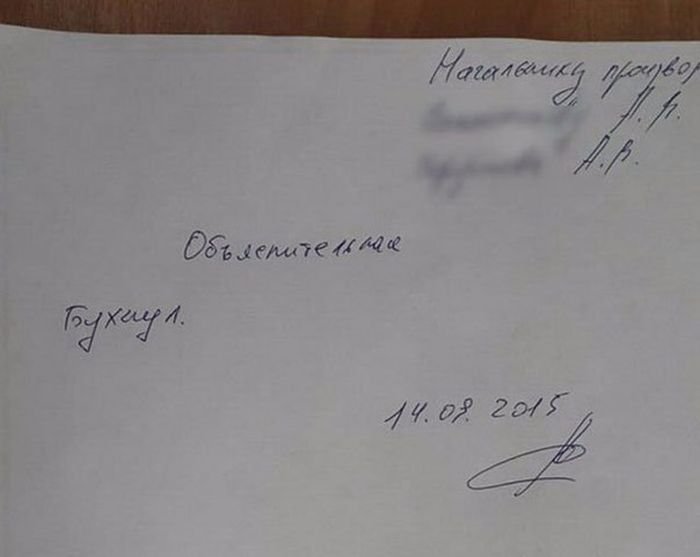 Начальнику производ
А.В.
А.В.
Объяснительная
Бухнул.
14.08.2015